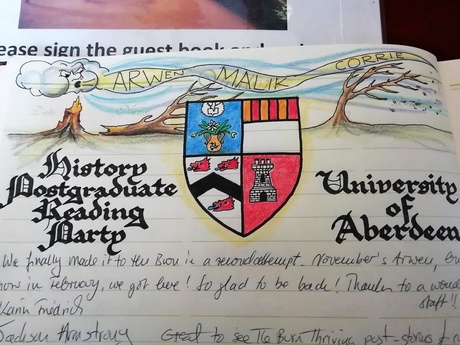 ease sign the guest book and
ARWEN MALIK CORRIE
History
Postgraduate
Reading
Party
University
of
Aberdeen
We finally made it to the Burn in a second attempt. November's Arwen, 
now in February, we got here! So glad to be back! Thanks to a
staff!!
Karin Friedrich
Jackson Armstrong Great to see The Burn thriving post-storms &